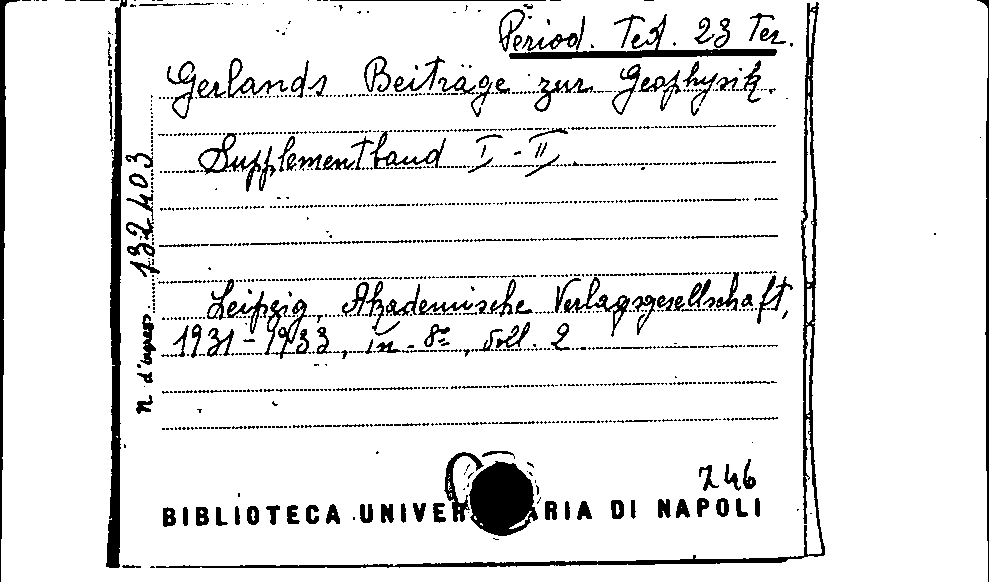 Period. Ted. 23 Ter.
Gerlands Beiträge zur Geophysik.
Supplementband I - II.
Leipzig, Akademische Verlagsgesellschaft,
1931 - 1933, in - 8º, voll. 2.
N. d'ingresso 132403
246
BIBLIOTECA UNIVER ARIA DI NAPOLI